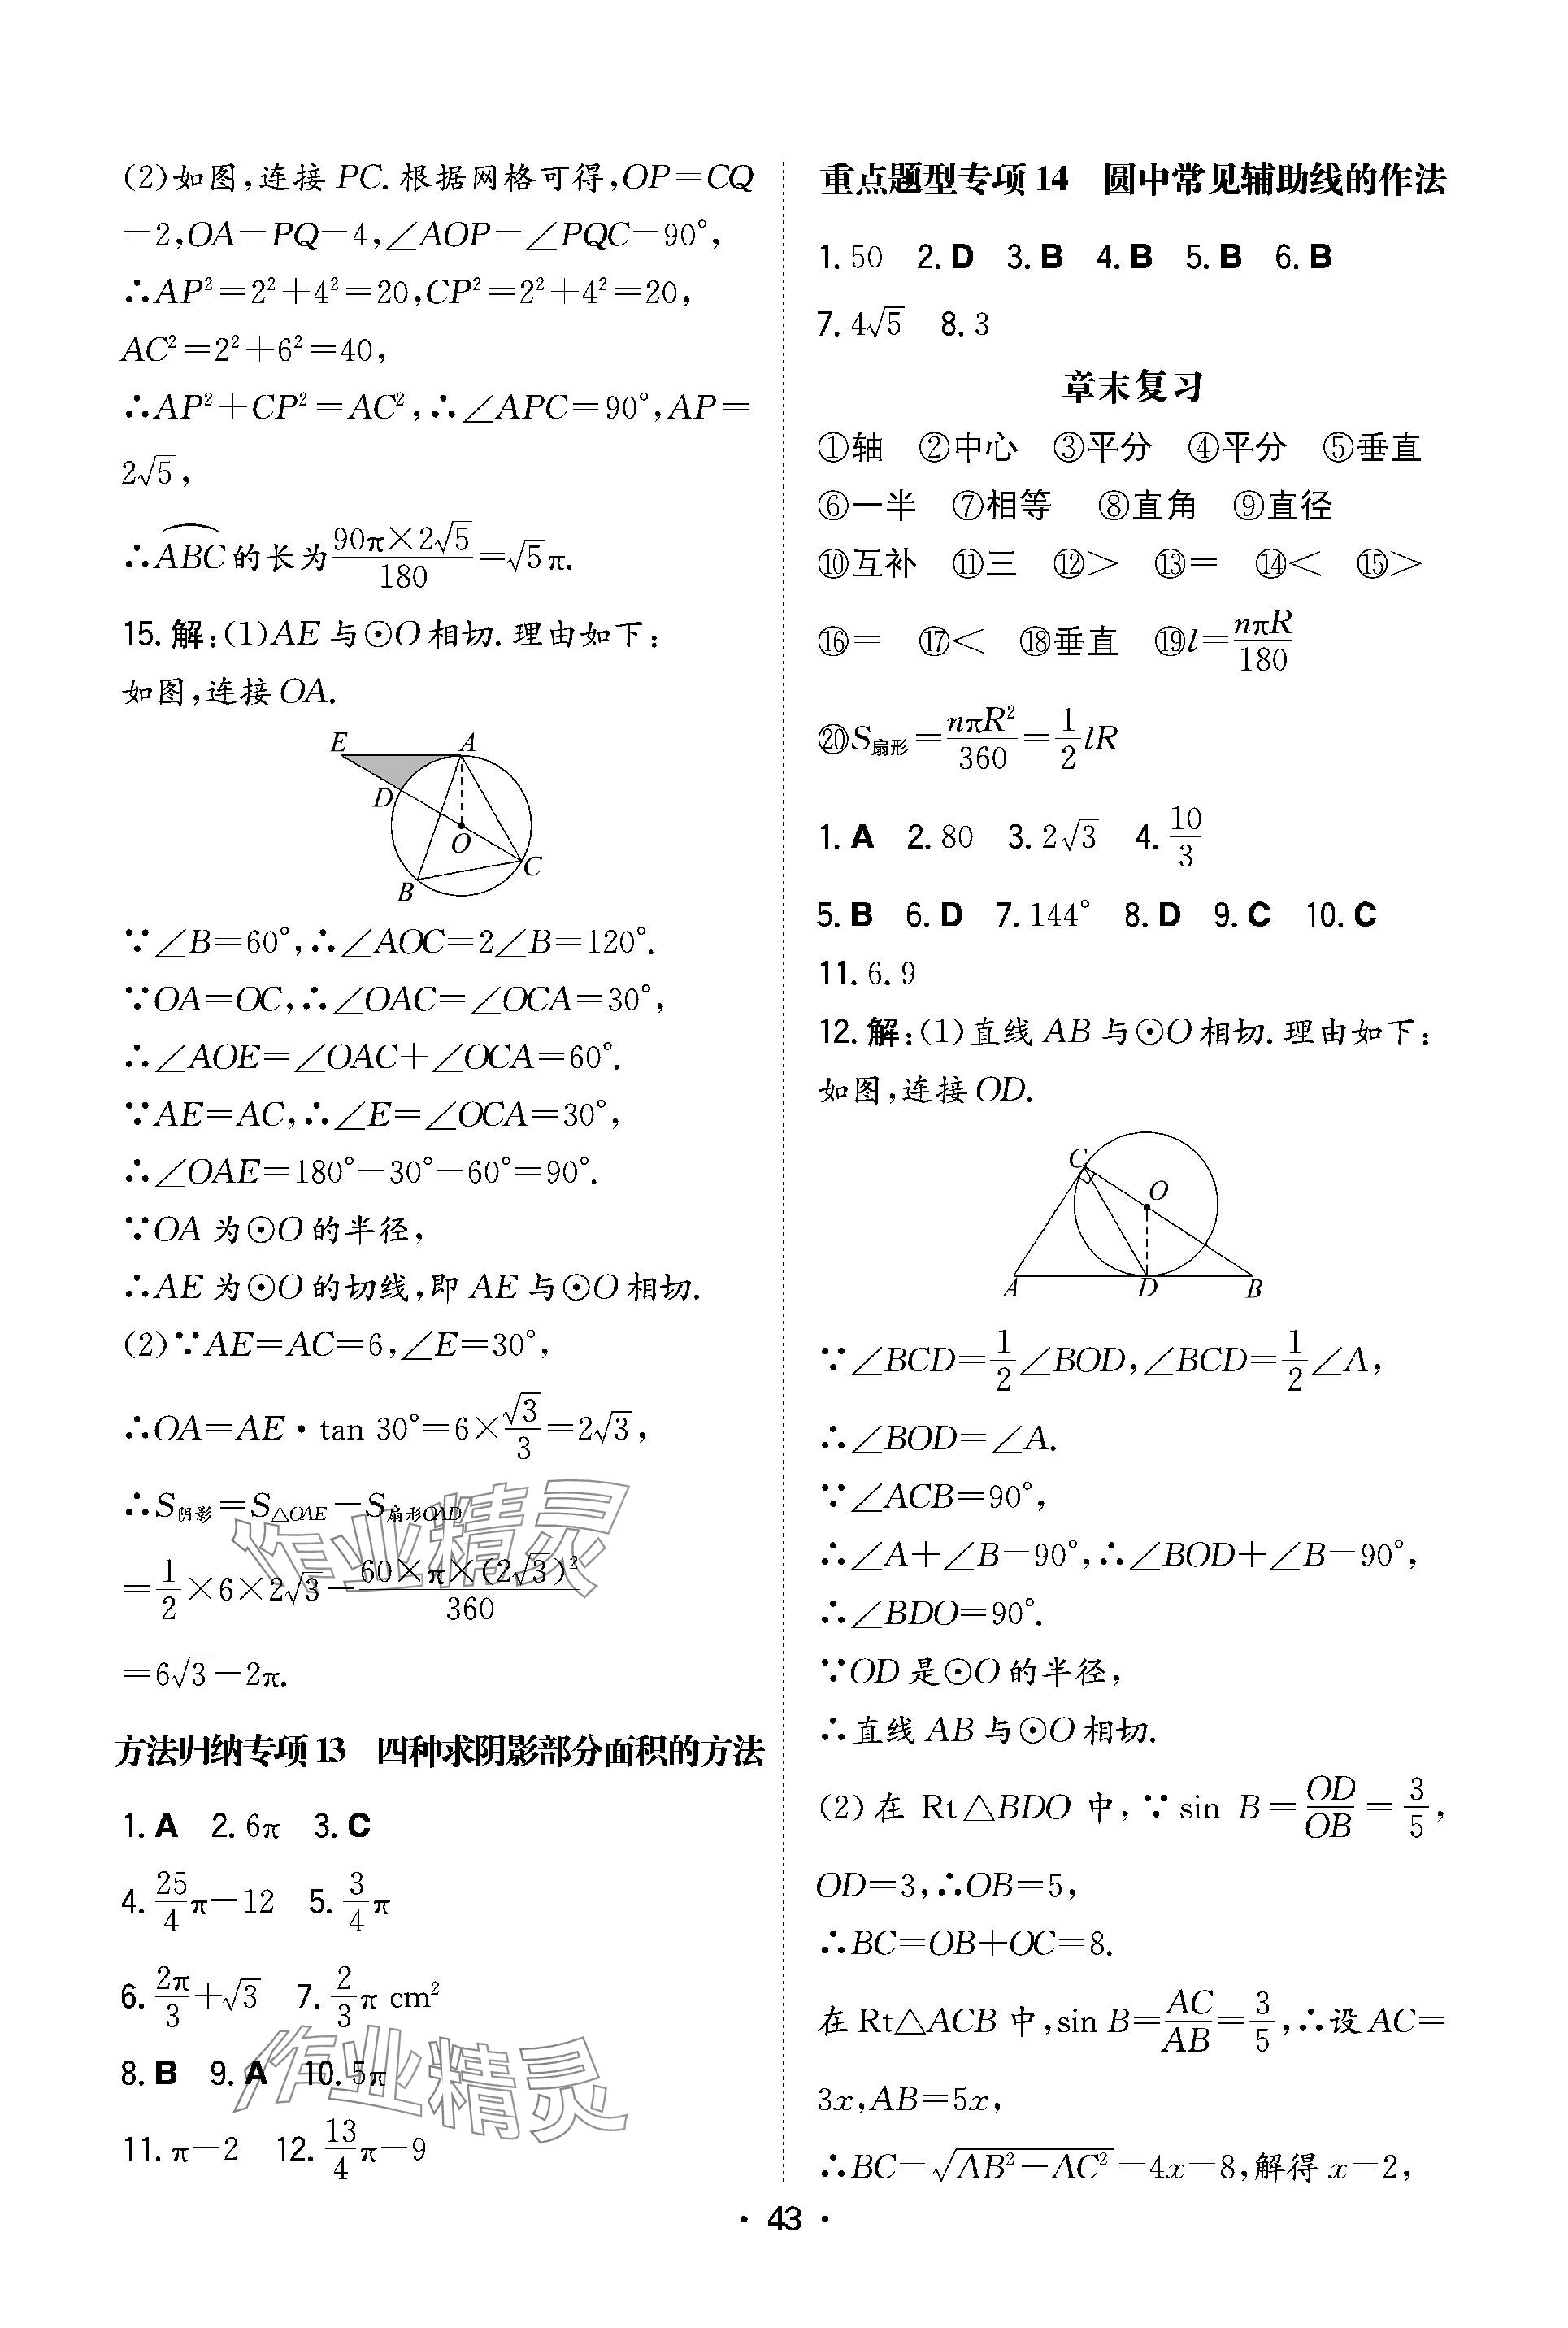 (2)如图,连接 PC. 根据网格可得,OP=CQ
=2,OA=PQ=4,∠AOP=∠PQC=90°,
∴AP²=2²+4²=20,CP²=2²+4²=20,
AC²=2²+6²=40,
∴AP²+CP²=AC²,∴∠APC=90°,AP=
2√5,
∴⌒ABC的长为(90π×2√5)/180=√5π.
15. 解:(1)AE与⊙O相切.理由如下:
如图,连接OA.
E A
D
O
C
B
∵∠B=60°,∴∠AOC=2∠B=120°.
∵OA=OC,∴∠OAC=∠OCA=30°,
∴∠AOE=∠OAC+∠OCA=60°.
∵AE=AC,∴∠E=∠OCA=30°,
∴∠OAE=180°-30°-60°=90°.
∵OA 为⊙O的半径,
∴AE为⊙O的切线,即AE与⊙O相切.
(2)∵AE=AC=6,∠E=30°,
∴OA=AE·tan 30°=6×√3/3=2√3,
∴S阴影=S△OAE-S扇形OAD
=1/2×6×2√3-(60×π×(2√3)²)/360
=6√3-2π.
方法归纳专项13 四种求阴影部分面积的方法
1. A 2. 6π 3. C
4. 25/4π-12 5. 3/4π
6. 2π/3+√3 7. 2/3π cm²
8. B 9. A 10. 5π
11. π-2 12. 13/4π-9
重点题型专项14 圆中常见辅助线的作法
1. 50 2. D 3. B 4. B 5. B 6. B
7. 4√5 8. 3
章末复习
①轴 ②中心 ③平分 ④平分 ⑤垂直
⑥一半 ⑦相等 ⑧直角 ⑨直径
⑩互补 ⑪三 ⑫> ⑬= ⑭< ⑮>
⑯= ⑰< ⑱垂直 ⑲l=nπR/180
⑳S扇形=nπR²/360=1/2lR
1. A 2. 80 3. 2√3 4. 10/3
5. B 6. D 7. 144° 8. D 9. C 10. C
11. 6. 9
12. 解:(1)直线AB与⊙O相切.理由如下:
如图,连接OD.
C
O
A D B
∵∠BCD=1/2∠BOD,∠BCD=1/2∠A,
∴∠BOD=∠A.
∵∠ACB=90°,
∴∠A+∠B=90°,∴∠BOD+∠B=90°,
∴∠BDO=90°.
∵OD是⊙O的半径,
∴直线AB与⊙O相切.
(2)在Rt△BDO中,∵sin B=OD/OB=3/5,
OD=3,∴OB=5,
∴BC=OB+OC=8.
在Rt△ACB中,sin B=AC/AB=3/5,∴设AC=
3x,AB=5x,
∴BC=√(AB²-AC²)=4x=8,解得x=2,
作业精灵
作业精灵
· 43 ·